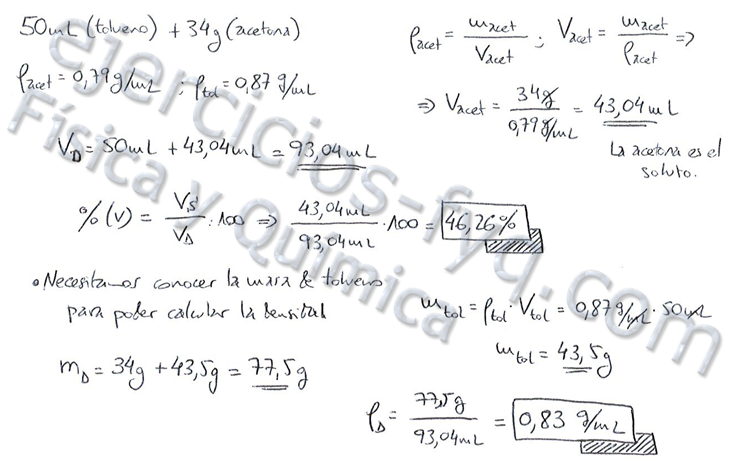 50mL (tolueno) + 34g (acetona)
ρacet = 0,79 g/mL ; ρtol = 0,87 g/mL
VD = 50mL + 43,04mL = 93,04mL
ρacet = macet / Vacet ; Vacet = macet / ρacet =>
=> Vacet = 34g / 0,79 g/mL = 43,04 mL
La acetona es el
soluto.
%(V) = VS / VD · 100 => 43,04mL / 93,04mL · 100 = 46,26%
• Necesitamos conocer la masa de tolueno
para poder calcular la densidad
mtol = ρtol · Vtol = 0,87 g/mL · 50mL
mtol = 43,5g
mD = 34g + 43,5g = 77,5g
ρD = 77,5g / 93,04mL = 0,83 g/mL
ejercicios-fyq.com
Física y Química